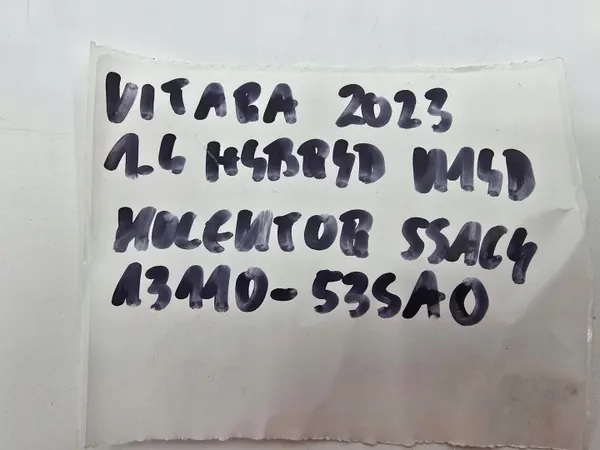 VITARA 2023
1.4 HYBRYD K14D
KOLEKTOR SSĄCY
13110-53SA0